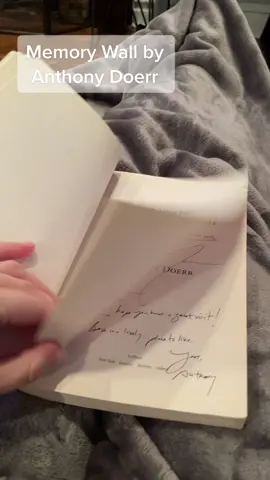 Memory Wall by
Anthony Doerr
DOERR
hope you have a great visit!
Boise is a lovely place to live.
Yours,
Anthony